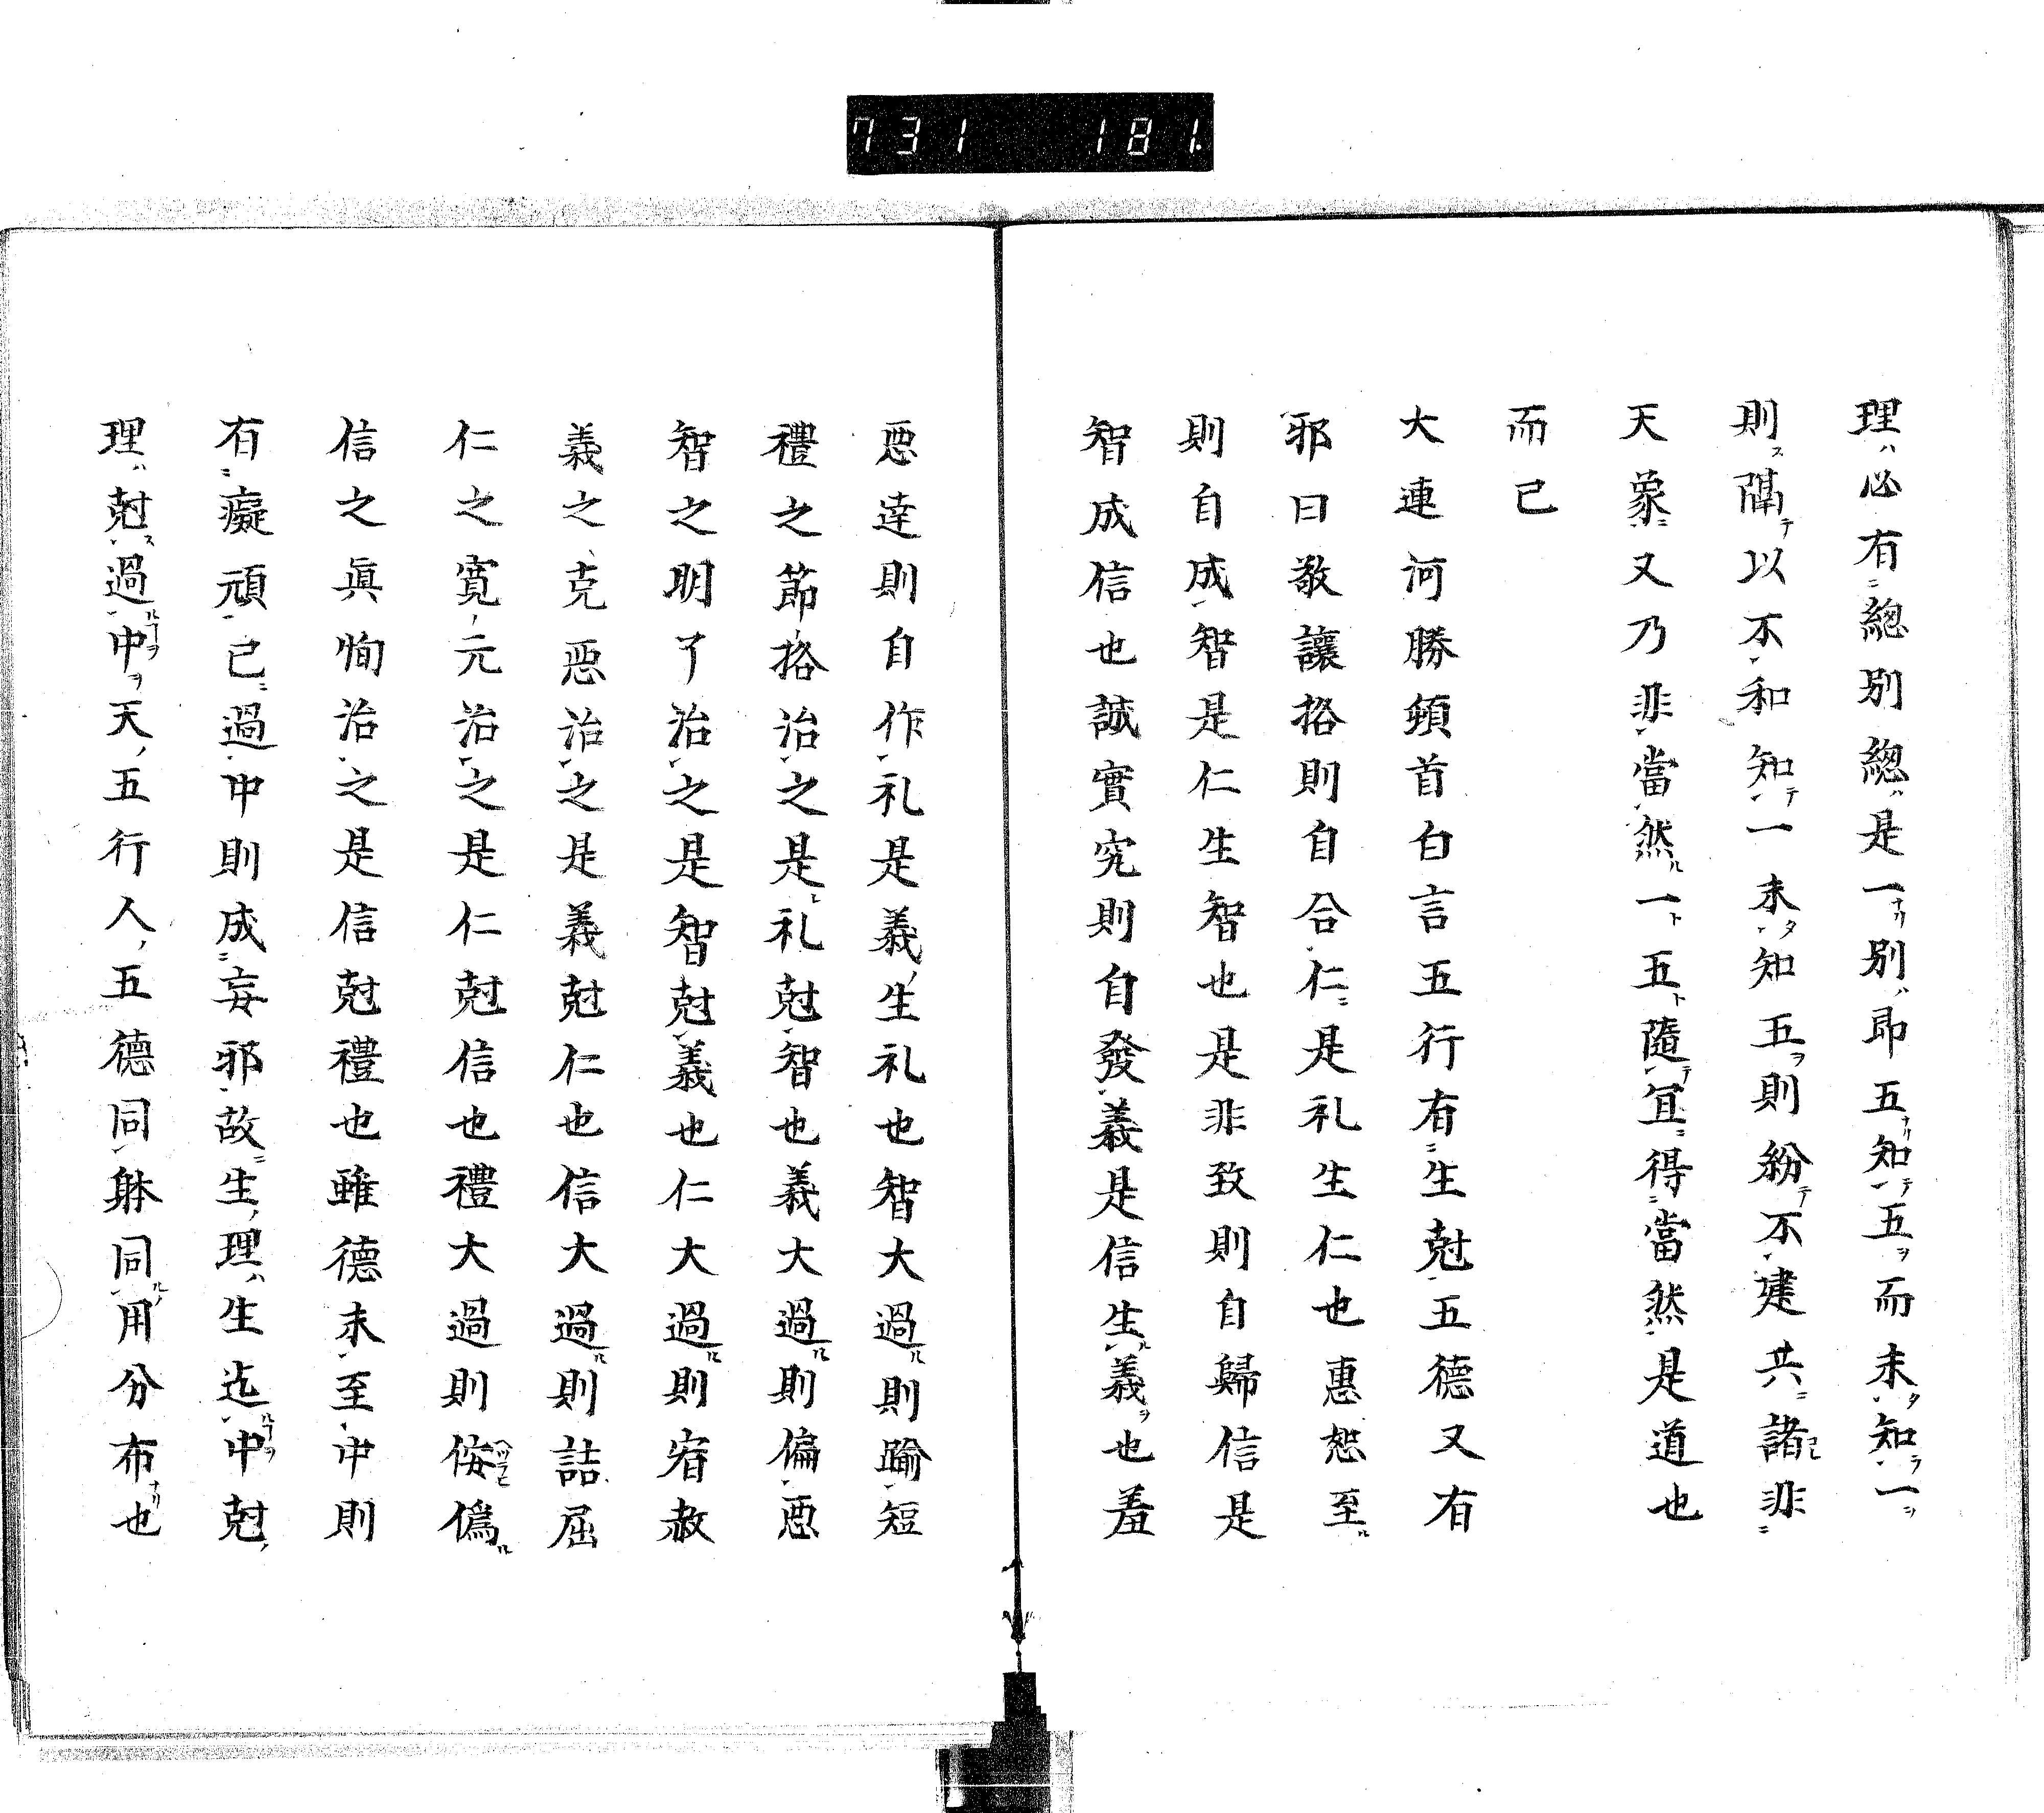 731 181.
理ハ必有ニ總別總ハ是一ナリ別ハ即五ナリ知テ五ヲ而未タ知ラ一ヲ
則ス隔テ以不和知テ一未タ知五ヲ則紛テ不建共ニ諸非ニ
天象ニ又乃非當然ル一ト五ト隨テ宜ニ得ニ當然是道也
而已
大連河勝頓首白言五行有ニ生尅五德又有
邪曰敬讓挌則自合仁ニ是礼生仁也惠恕至ル
則自成智是仁生智也是非致則自歸信是
智成信也誠實究則自發義是信生ル義ヲ也羞
悪達則自作礼是義生礼也智大過ル則踰短
禮之節挌治之是礼尅智也義大過ル則偏悪
智之明了治之是智尅義也仁大過ル則宥赦
義之克悪治之是義尅仁也信大過ル則詰屈
仁之寛元治之是仁尅信也禮大過則侫偽ル
信之眞恂治之是信尅禮也雖德未至中則
有ニ癡頑己ニ過中則成ニ妄邪故ニ生ノ理ハ生迄中ヲ尅ノ
理ハ尅ス過中ヲ天ノ五行人ノ五德同躰同用分布ナリ也